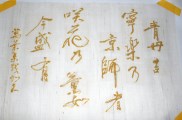 青丹吉
寧樂乃
京師者
咲花乃薫如
今盛有